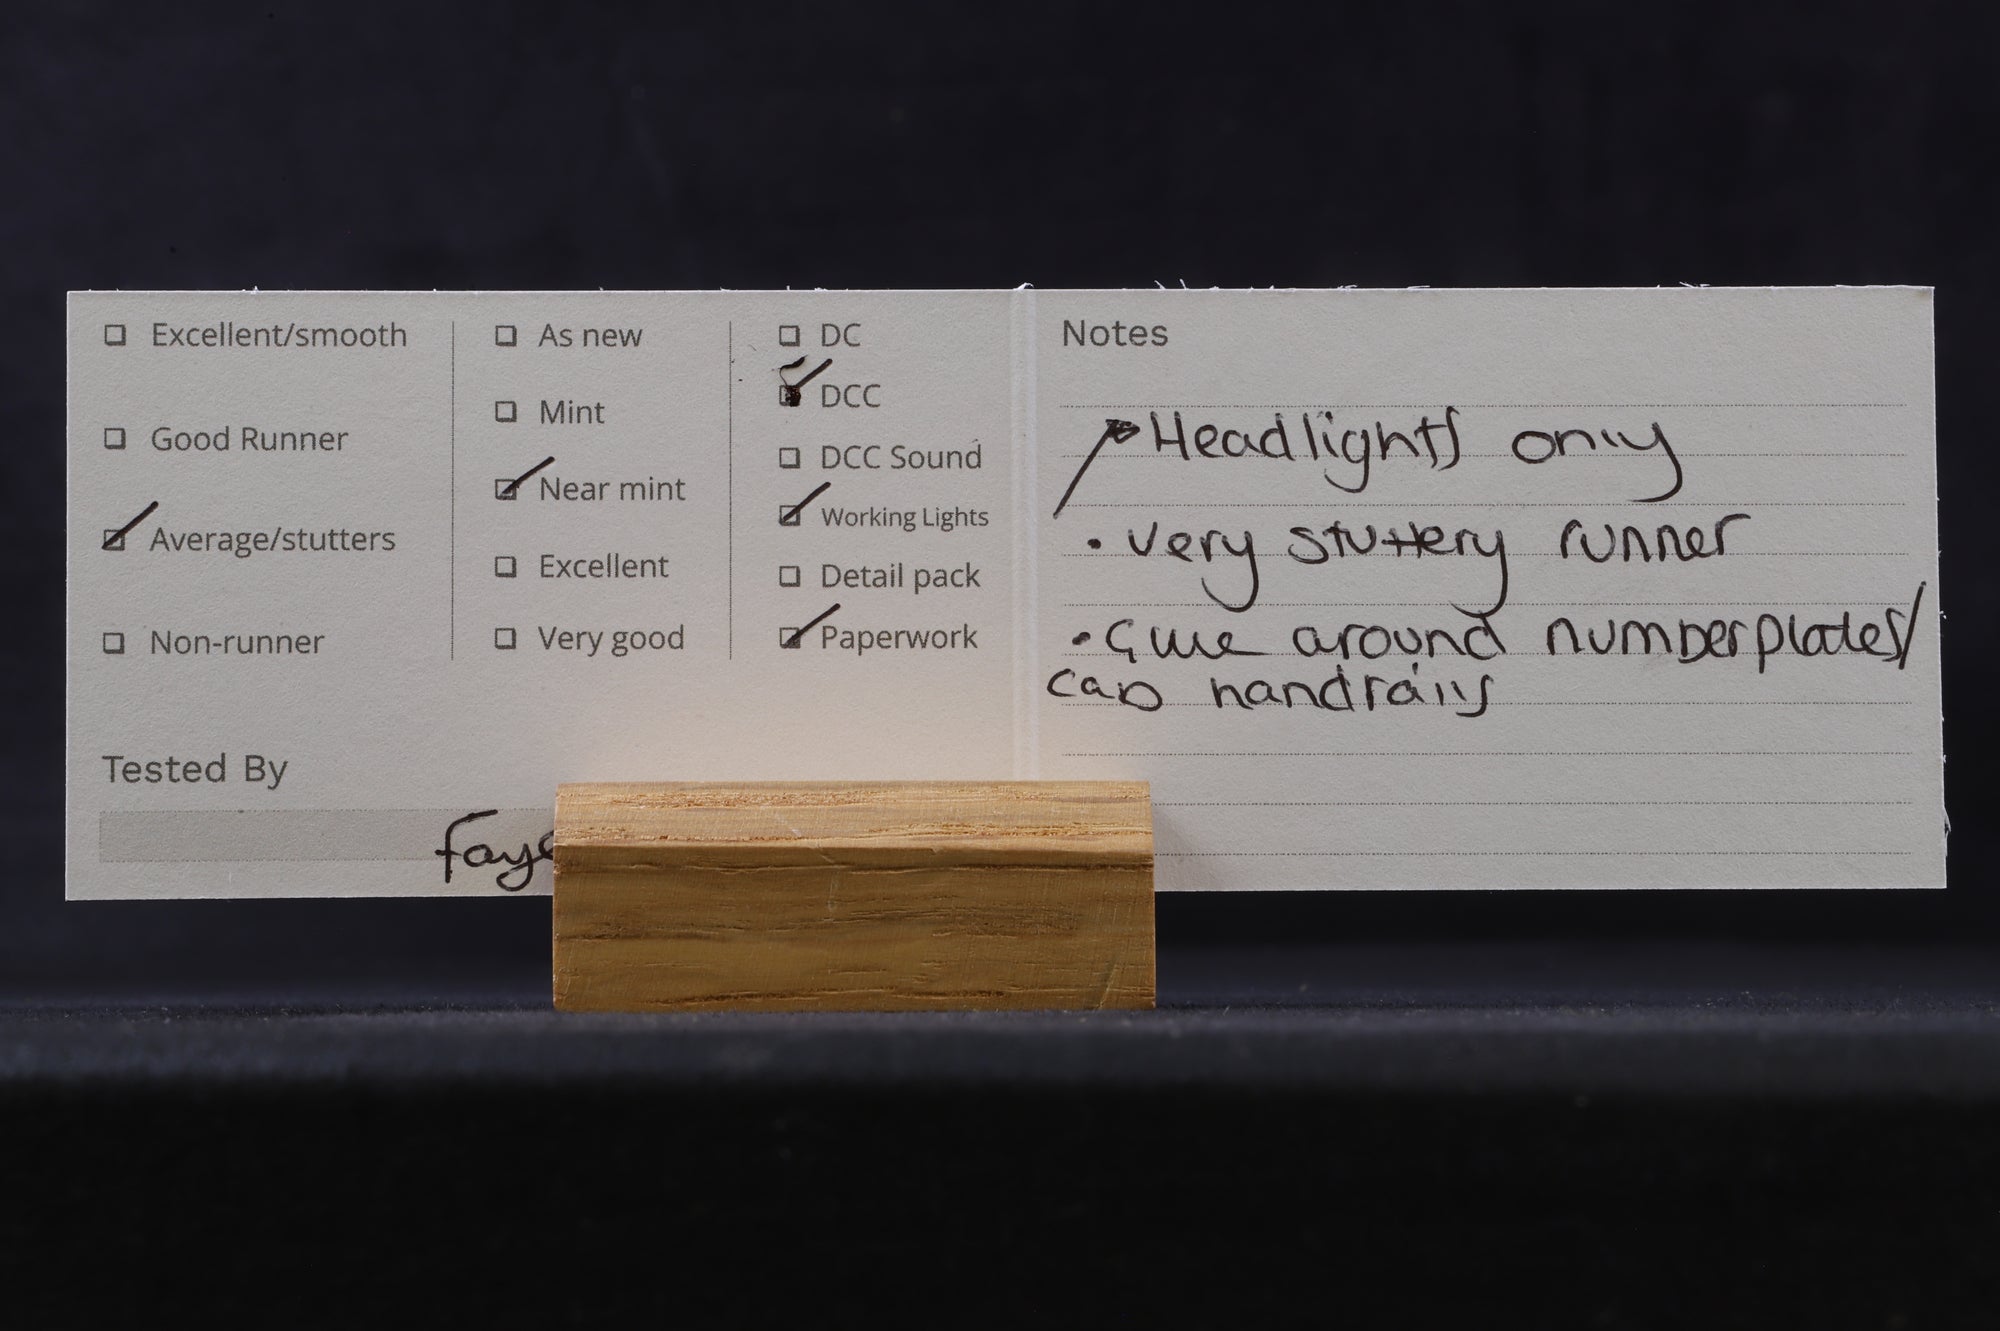 Excellent/smooth
Good Runner
Average/stutters
Non-runner
As new
Mint
Near mint
Excellent
Very good
DC
DCC
DCC Sound
Working Lights
Detail pack
Paperwork
Tested By
Faye
Notes
Headlights only
• Very stuttery runner
• Glue around numberplates/
cab handrails